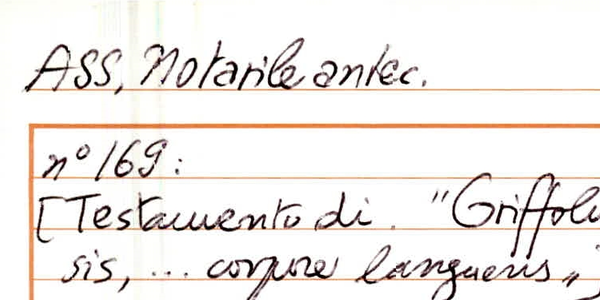 ASS, Notarile antec.
n° 169:
[Testamento di. "Griffolu
sis, ... corpore languens,,]